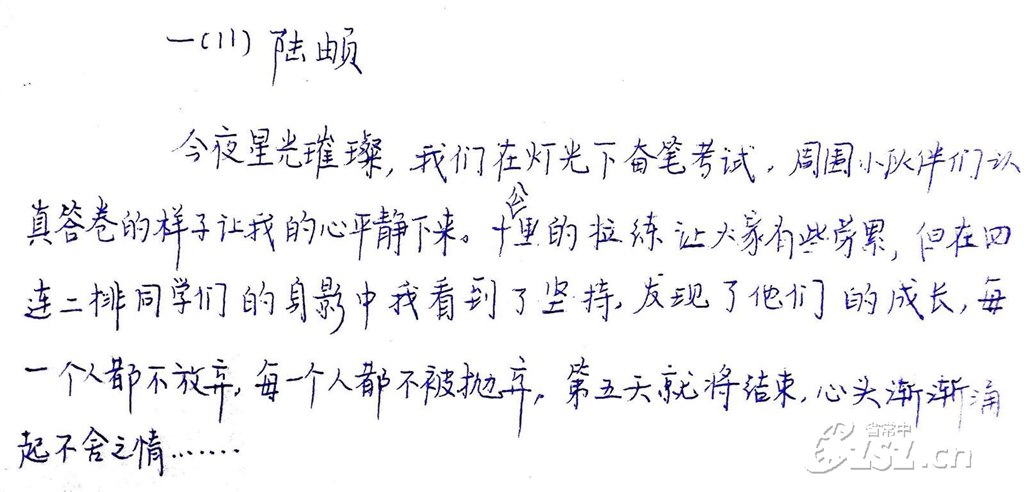 一(11) 陆頔
今夜星光璀璨，我们在灯光下奋笔考试，周围小伙伴们认
真答卷的样子让我的心平静下来。十公里的拉练让大家有些劳累，但在四
连二排同学们的身影中我看到了坚持，发现了他们的成长，每
一个人都不放弃，每一个人都不被抛弃。第五天就将结束，心头渐渐涌
起不舍之情.......
省常中
CSZ.cn